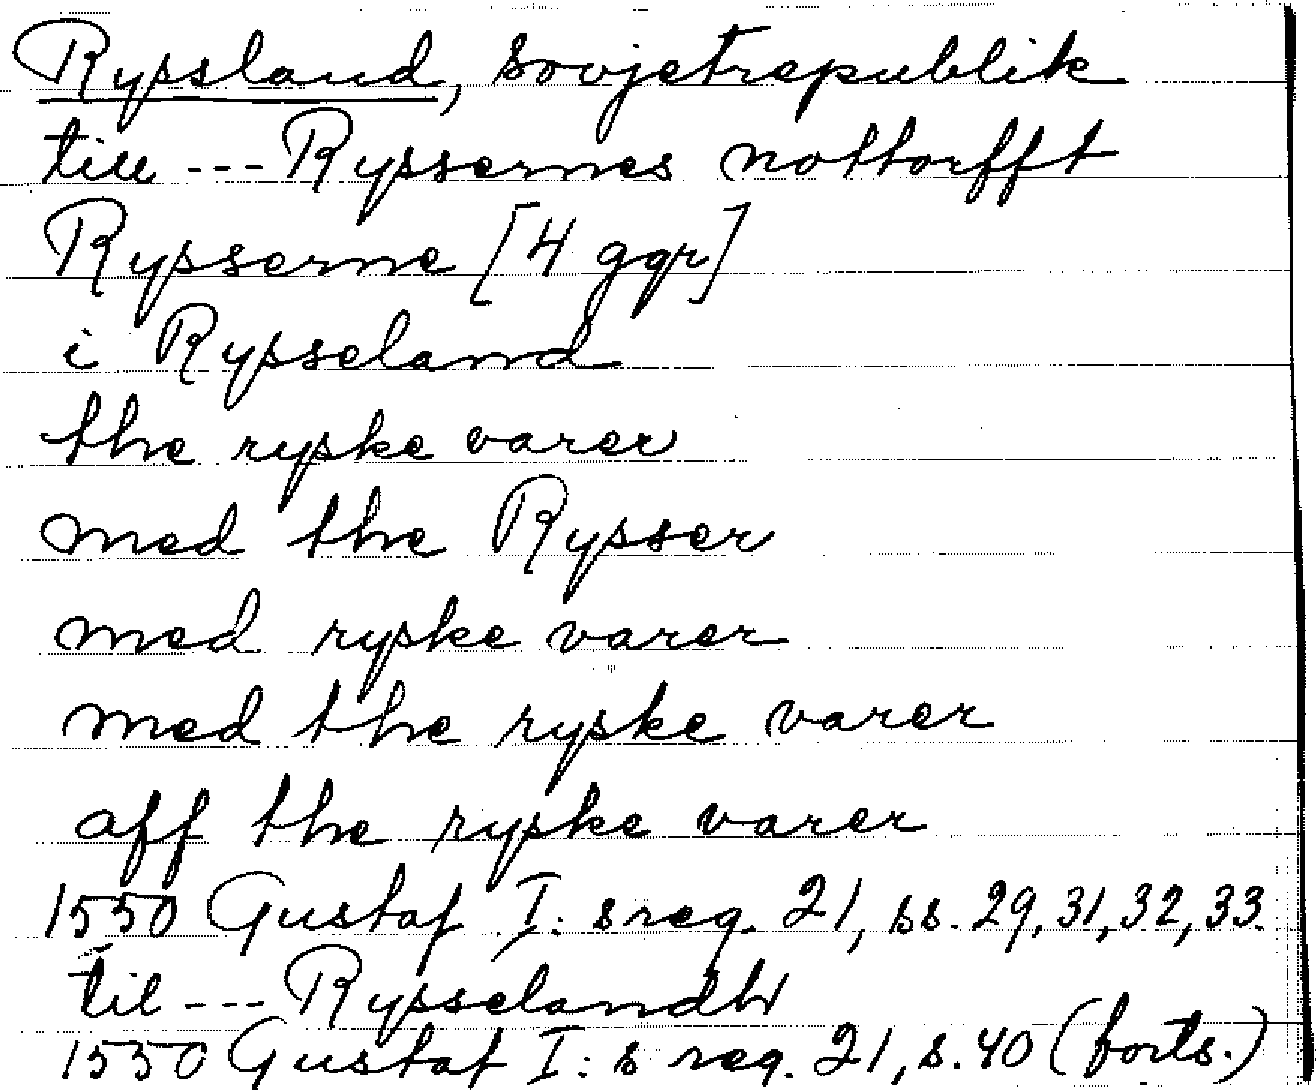 Ryssland, Sovjetrepublik
till --- Ryssernes nottorfft
Rysserne [4 ggr]
i Rysseland
the ryske varer
med the Rysser
med ryske varer
med the ryske varer
aff the ryske varer
1550 Gustaf I:s reg. 21, ss. 29, 31, 32, 33.
til --- Rysselandh
1550 Gustaf I:s reg. 21, s. 40 (forts.)